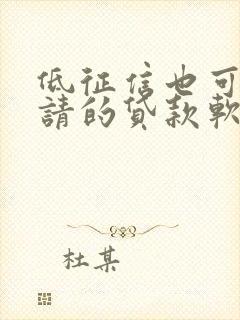 低征信也可
請的贷款軟
杜某